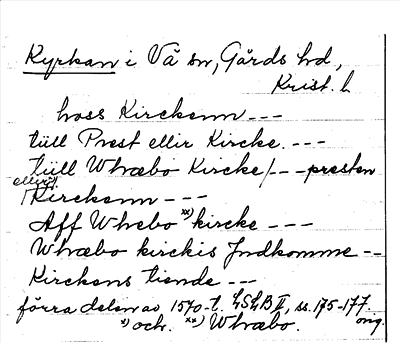 Kyrkan i Vä sn, Gärds hd,
Krist. l
hoss Kirckenn ---
tüll Prest ellir Kircke. ---
tüll Whæbo Kircke/ --- presten
eller x)
Kirckenn ---
Aff Whebo xx) kircke ---
Whæbo kirckis Jndkomme --
Kirckens tiende ---
förra delen av 1570-t. LSLB II, ss. 175-177.
x) och. xx) Whæbo. orig.